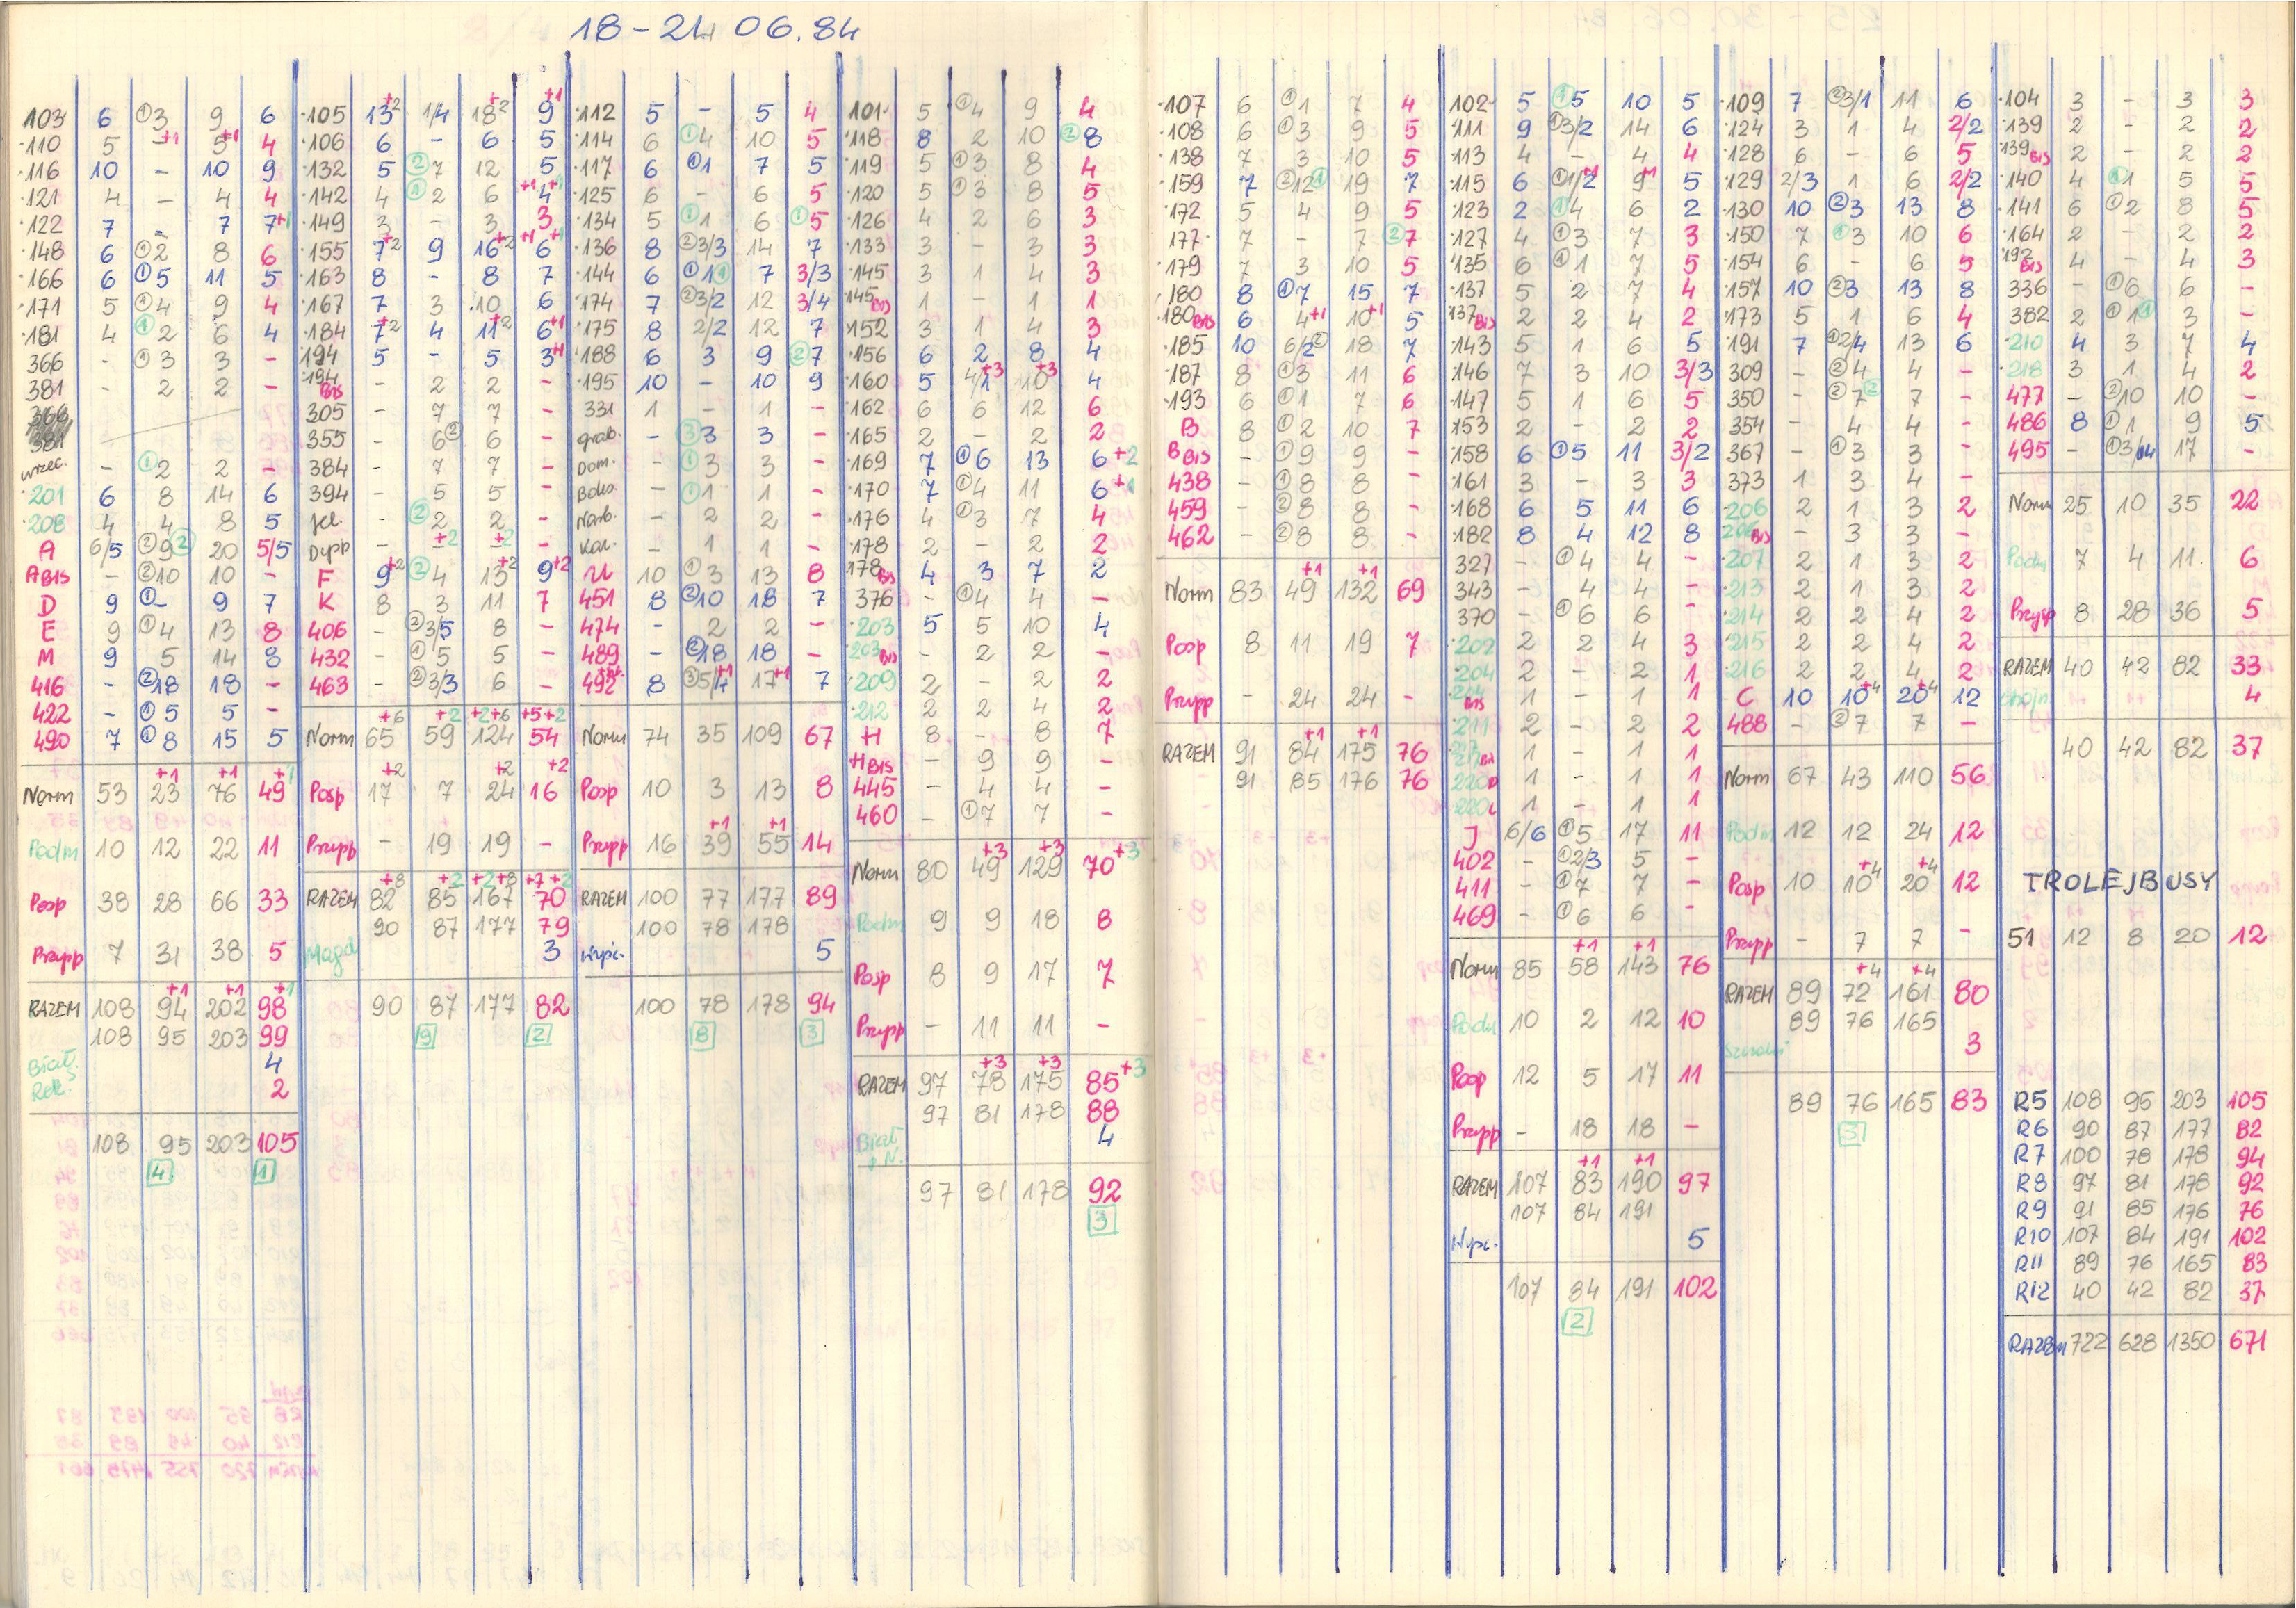 18 - 24 06.84
103 6 ①3 9 6
110 5 - +1 5 +1 4
116 10 - 10 9
121 4 - 4 4
122 7 - 7 7+1
148 6 ①2 8 6
166 6 ①5 11 5
171 5 ①4 9 4
181 4 ①2 6 4
366 - ①3 3 -
381 - 2 2 -
wrzec. - ①2 2 -
201 6 8 14 6
208 4 4 8 5
A 6/5 ②9② 20 5/5
A BIS - ②10 10 -
D 9 ①- 9 7
E 9 ①4 13 8
M 9 5 14 8
416 - ②18 18 -
422 - ①5 5 -
490 7 ①8 15 5
Norm 53 23 +1 76 +1 49 +1
Podm 10 12 22 11
Posp 38 28 66 33
Przysp 7 31 38 5
RAZEM 108 94 +1 202 +1 98 +1
108 95 203 99
4
2
108 95 203 105
4 1
105 13+2 1/4 18+2 9+1
106 6 - 6 5
132 5 ②7 12 5
142 4 ②2 6 4 +1
149 3 - 3 3
155 7+2 9 16+2 6 +1
163 8 - 8 7
167 7 3 10 6
184 7+2 4 11+2 6+1
194 5 - 5 3+1
194 BIS - 2 2 -
305 - 7 7 -
355 - 6② 6 -
384 - 7 7 -
394 - 5 5 -
Jel. - ②2 2 -
- - +2 - +2 -
F 9+2 ②4 13+2 9+2
K 8 3 11 7
406 - ②3/5 8 -
432 - ①5 5 -
463 - ②3/3 6 -
+6 +2 +2+6 +5+2
Norm 65 59 124 54
+2 +2 +2
Posp 17 7 24 16
Przysp - 19 19 -
+8 +2 +2+8 +7+2
RAZEM 82 85 167 70
90 87 177 79
Magd 3
90 87 177 82
9 2
112 5 - 5 4
114 6 ①4 10 5
117 6 ①1 7 5
125 6 - 6 5
134 5 ①1 6 ①5
136 8 ②3/3 14 7
144 6 ①1① 7 3/3
174 7 ②3/2 12 3/4
175 8 2/2 12 7
188 6 3 9 ②7
195 10 - 10 9
331 1 - 1 -
grab. - ③3 3 -
Dom. - ①3 3 -
Boko. - ①1 1 -
Narb. - 2 2 -
Kar. - 1 1 -
U 10 ①3 13 8
451 8 ②10 18 7
474 - 2 2 -
489 - ②18 18 -
492 8 ③5/4+1 17+1 7
Norm 74 35 109 67
Posp 10 3 13 8
Przysp 16 39 +1 55 +1 14
RAZEM 100 77 177 89
100 78 178
Wypi. 5
100 78 178 94
8 3
101 5 ①4 9 4
118 8 2 10 ②8
119 5 ①3 8 4
120 5 ①3 8 5
126 4 2 6 3
133 3 - 3 3
145 3 1 4 3
145 BIS 1 - 1 1
152 3 1 4 3
156 6 2 8 4
160 5 4/1+3 10+3 4
162 6 6 12 6
165 2 - 2 2
169 7 ①6 13 6+2
170 7 ①4 11 6+1
176 4 ①3 7 4
178 2 - 2 2
178 BIS 4 3 7 2
376 - ①4 4 -
203 5 5 10 4
203 BIS - 2 2 -
209 2 - 2 2
212 2 2 4 2
H 8 - 8 7
H BIS - 9 9 -
445 - 4 4 -
460 - ①7 7 -
Norm 80 49 +3 129 +3 70 +3
Podm 9 9 18 8
Posp 8 9 17 7
Przysp - 11 11 -
RAZEM 97 78 +3 175 +3 85 +3
97 81 178 88
4
97 81 178 92
3
107 6 ①1 7 4
108 6 ①3 9 5
138 7 3 10 5
159 7 ②12① 19 7
172 5 4 9 5
177 7 - 7 ②7
179 7 3 10 5
180 8 ①7 15 7
180 BIS 6 4+1 10+1 5
185 10 6/2② 18 7
187 8 ①3 11 6
193 6 ①1 7 6
B 8 ①2 10 7
B BIS - ①9 9 -
438 - ①8 8 -
459 - ②8 8 -
462 - ②8 8 -
Norm 83 49 +1 132 +1 69
Posp 8 11 19 7
Przysp - 24 24 -
RAZEM 91 84 +1 175 +1 76
91 85 176 76
102 5 ①5 10 5
111 9 ①3/2 14 6
113 4 - 4 4
115 6 ①1/2+1 9+1 5
123 2 ①4 6 2
127 4 ①3 7 3
135 6 ①1 7 5
137 5 2 7 4
137 BIS 2 2 4 2
143 5 1 6 5
146 7 3 10 3/3
147 5 1 6 5
153 2 - 2 2
158 6 ①5 11 3/2
161 3 - 3 3
168 6 5 11 6
182 8 4 12 8
327 - ①4 4 -
343 - 4 4 -
370 - ①6 6 -
202 2 2 4 3
204 2 - 2 1
BIS 1 - 1 1
211 2 - 2 2
1 - 1 1
220 1 - 1 1
220 1 - 1 1
J 6/6 ①5 17 11
402 - ①2/3 5 -
411 - ①7 7 -
469 - ①6 6 -
Norm 85 58 +1 143 +1 76
Podm 10 2 12 10
Posp 12 5 17 11
Przysp - 18 18 -
RAZEM 107 83 +1 190 +1 97
107 84 191
Wypi. 5
107 84 191 102
2
109 7 ②3/1 11 6
124 3 1 4 2/2
128 6 - 6 5
129 2/3 1 6 2/2
130 10 ②3 13 8
150 7 ①3 10 6
154 6 - 6 5
157 10 ②3 13 8
173 5 1 6 4
191 7 ①2/4 13 6
309 - ②4 4 -
350 - ②7② 7 -
354 - 4 4 -
367 - ①3 3 -
373 1 3 4 -
206 2 1 3 2
206 BIS - 3 3 -
207 2 1 3 2
213 2 1 3 2
214 2 2 4 2
215 2 2 4 2
216 2 2 4 2
C 10 10+4 20+4 12
488 - ②7 7 -
Norm 67 43 110 56
Podm 12 12 24 12
Posp 10 10+4 20+4 12
Przysp - 7 7 -
RAZEM 89 72 +4 161 +4 80
89 76 165
3
89 76 165 83
3
104 3 - 3 3
139 2 - 2 2
139 BIS 2 - 2 2
140 4 ①1 5 5
141 6 ①2 8 5
164 2 - 2 2
192 BIS 4 - 4 3
336 - ①6 6 -
382 2 ①1① 3 -
210 4 3 7 4
218 3 1 4 2
477 - ②10 10 -
486 8 ①1 9 5
495 - ①3/14 17 -
Norm 25 10 35 22
Podm 7 4 11 6
Przysp 8 28 36 5
RAZEM 40 42 82 33
4
40 42 82 37
TROLEJBUSY
51 12 8 20 12
R5 108 95 203 105
R6 90 87 177 82
R7 100 78 178 94
R8 97 81 178 92
R9 91 85 176 76
R10 107 84 191 102
R11 89 76 165 83
R12 40 42 82 37
RAZEM 722 628 1350 671